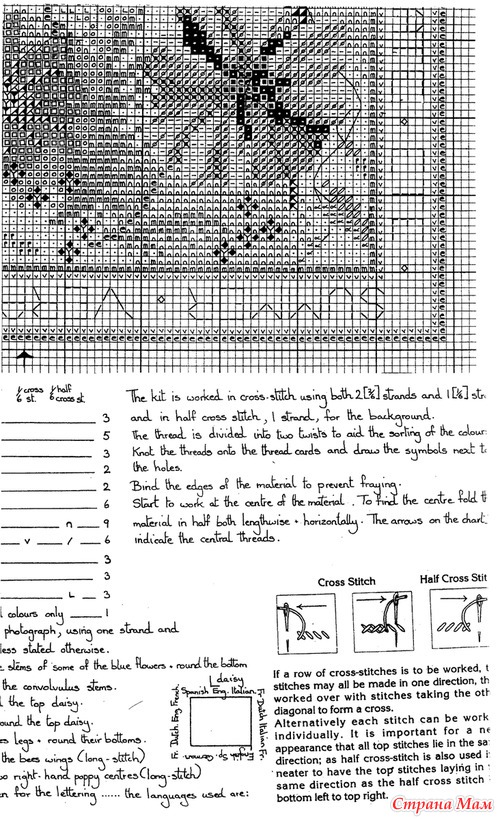 ½ cross ½ half
6 st. 6 cross st.
3
5
3
2
2
6
n 9
v / 6
3
3
L 3
l colours only 1
photograph, using one strand and
less stated otherwise.
e stems of some of the blue flowers + round the bottom
the convolvulus stems.
d the top daisy.
ound the top daisy.
es legs + round their bottoms.
the bees wings (long-stitch)
wo right-hand poppy centres (long-stitch)
en for the lettering ...... the languages used are:
The kit is worked in cross-stitch using both 2 [⅔] strands and 1 [⅙] str
and in half cross stitch, 1 strand, for the background.
The thread is divided into two twists to aid the sorting of the colour
Knot the threads onto the thread cards and draw the symbols next t
the holes.
Bind the edges of the material to prevent fraying.
Start to work at the centre of the material. To find the centre fold t
material in half both lengthwise + horizontally. The arrows on the chart
indicate the central threads.
L daisy
Spanish Eng. Italian.
Fr. Dutch Eng. French.
Fr. Dutch Italian Fr.
English Sp. German.
Cross Stitch
Half Cross Stit
If a row of cross-stitches is to be worked, t
stitches may all be made in one direction, th
worked over with stitches taking the oth
diagonal to form a cross.
Alternatively each stitch can be work
individually. It is important for a ne
appearance that all top stitches lie in the sa
direction; as half cross-stitch is also used i
neater to have the top stitches laying in
same direction as the half cross stitch
bottom left to top right.
Страна Мам